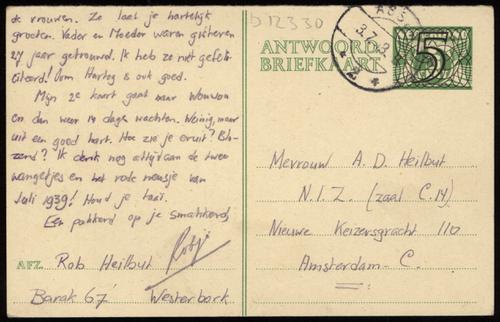 de vrouwen. Ze laat je hartelijk
groeten. Vader en Moeder waren gisteren
27 jaar getrouwd. Ik heb ze niet gefeli-
citeerd! Oom Hartog is ook goed.
Mijn 2e kaart gaat naar Wouwon
en dan weer 14 dagen wachten. Weinig, maar
uit een goed hart. Hoe zie je eruit? Bla-
zend? Ik denk nog altijd aan de twee
wangetjes en het rode neusje van
Juli 1939! Houd je taai.
Een pakkerd op je smakkerd,
Robje
AFZ. Rob Heilbut
Barak 67 Westerbork
b 12330
ANTWOORD-
BRIEFKAART
5
Mevrouw A. D. Heilbut
N.I.Z. (zaal C.14)
Nieuwe Keizersgracht 110
Amsterdam-C.